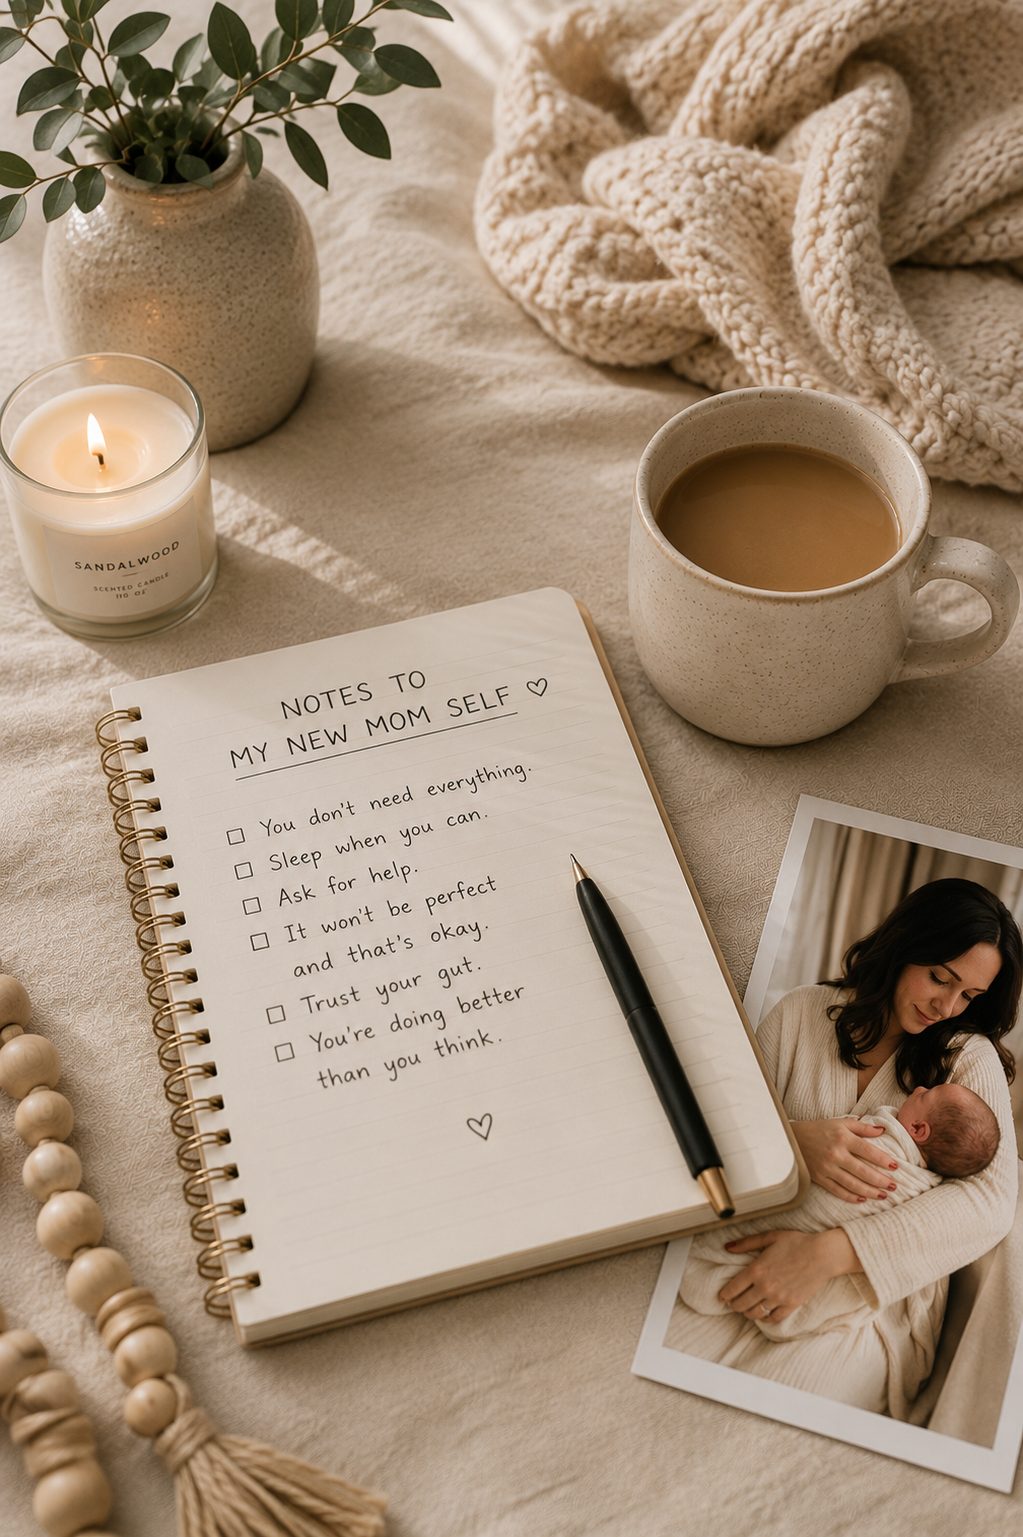 SANDALWOOD
SCENTED CANDLE
110 OZ
NOTES TO
MY NEW MOM SELF ♡
☐ You don't need everything.
☐ Sleep when you can.
☐ Ask for help.
☐ It won't be perfect
and that's okay.
☐ Trust your gut.
☐ You're doing better
than you think.
♡